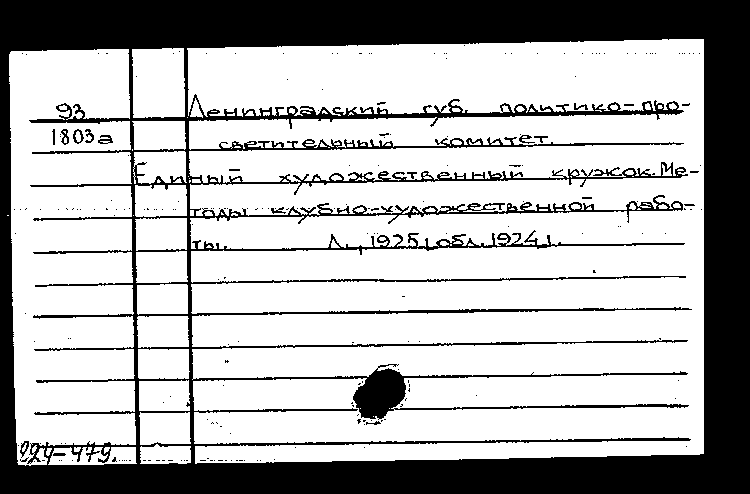 93 Ленинградский губ. политико-про-
1803а светительный комитет.
Единый художественный кружок. Ме-
тоды клубно-художественной рабо-
ты. Л., 1925 [обл. 1924].
-479.